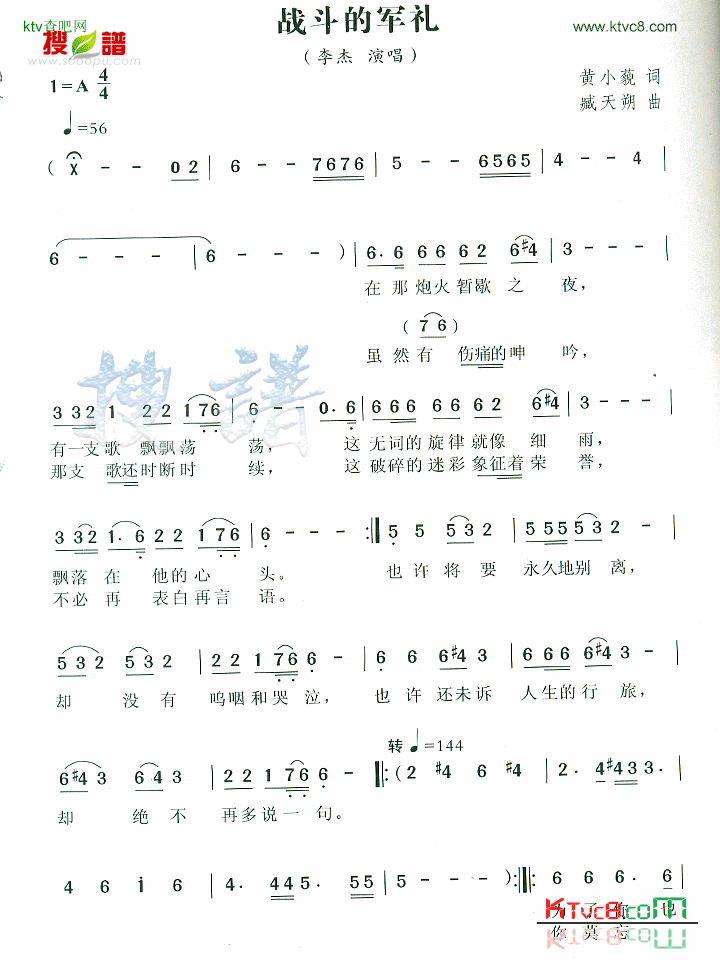 ktv查吧网
www.ktvc8.com
搜譜
www.sooopu.com
战斗的军礼
(李杰 演唱)
1=A 4/4
黄小藐 词
臧天朔 曲
♩=56
( X - - 0 2 | 6 - - 7676 | 5 - - 6565 | 4 - - 4545 |
6 - - - | 6 - - - ) | 6. 6 6 6 6 2 6 #4 | 3 - - - |
在那炮火暂歇之夜,
(7 6)
虽然有伤痛的呻吟,
搜譜
3 3 2 1 2 2 1 7 6 | 6 - - 0. 6 | 6 6 6 6 6 6 2 6 #4 | 3 - - - |
有一支歌飘飘荡荡, 这无词的旋律就像细雨,
那支歌还时断时续, 这破碎的迷彩象征着荣誉,
3 3 2 1. 6 2 2 1 7 6 | 6 - - - :| 5 5 5 3 2 | 5 5 5 5 3 2 - |
飘落在他的心头。 也许将要永久地别离,
不必再表白再言语。
5 3 2 2 5 3 2 | 2 2 1 7 6 6 - | 6 6 6 #4 3 | 6 6 6 6 #4 3 - |
却没有呜咽和哭泣, 也许还未诉人生的行旅,
转 ♩=144
6 #4 3 6 4 3 | 2 2 1 7 6 6 - |: ( 2 #4 6 #4 | 2. 4 #4 3 3. |
却绝不再多说一句。
4 6 i 6 | 2. 4 4 5. 5 5 | 5 - - - ) :|: 6 6 6. 6 |
KTvc8.com
你莫忘